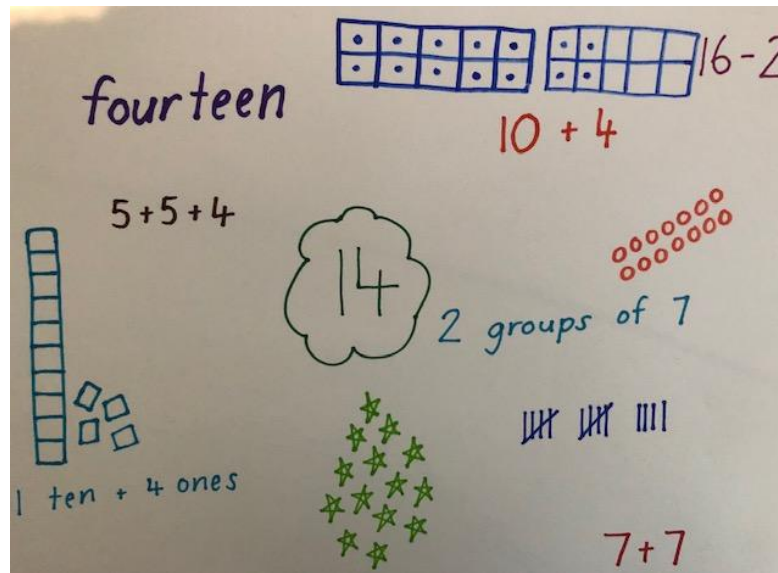 16-2
fourteen
10 + 4
5+5+4
14
2 groups of 7
1 ten + 4 ones
7+7